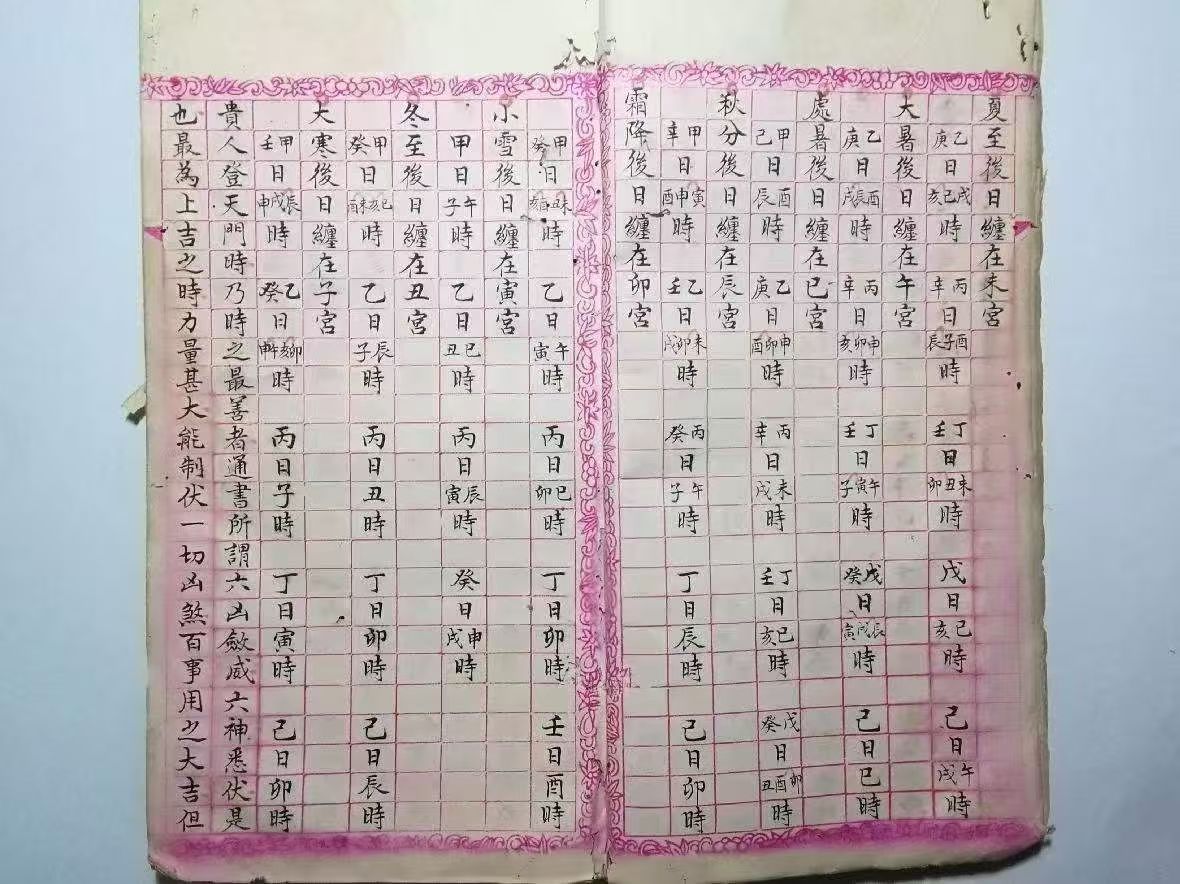 夏至後日纏在未宮
乙庚日戌巳亥時丙辛日酉子辰時丁壬日未丑卯時戊日巳亥時己日午戌時
大暑後日纏在午宮
乙庚日酉辰戌時丙辛日申卯亥時丁壬日午寅子時戊癸日辰戌寅時己日巳時
處暑後日纏在巳宮
甲己日酉辰時乙庚日申卯酉時丙辛日未戌時丁壬日巳亥時戊癸日卯酉丑時
秋分後日纏在辰宮
甲辛日寅申酉時乙壬日未卯戌時丙癸日午子時丁日辰時己日卯時
霜降後日纏在卯宮
甲癸日未丑亥時乙日午寅時丙日巳卯時丁日卯時壬日酉時
小雪後日纏在寅宮
甲日午子時乙日巳丑時丙日辰寅時癸日申戌時
冬至後日纏在丑宮
甲癸日巳亥未酉時乙日辰子時丙日丑時丁日卯時己日辰時
大寒後日纏在子宮
甲壬日辰戌申時乙癸日卯亥申時丙日子時丁日寅時己日卯時
貴人登天門時乃時之最善者通書所謂六凶斂威六神悉伏是
也最為上吉之時力量甚大能制伏一切凶煞百事用之大吉但